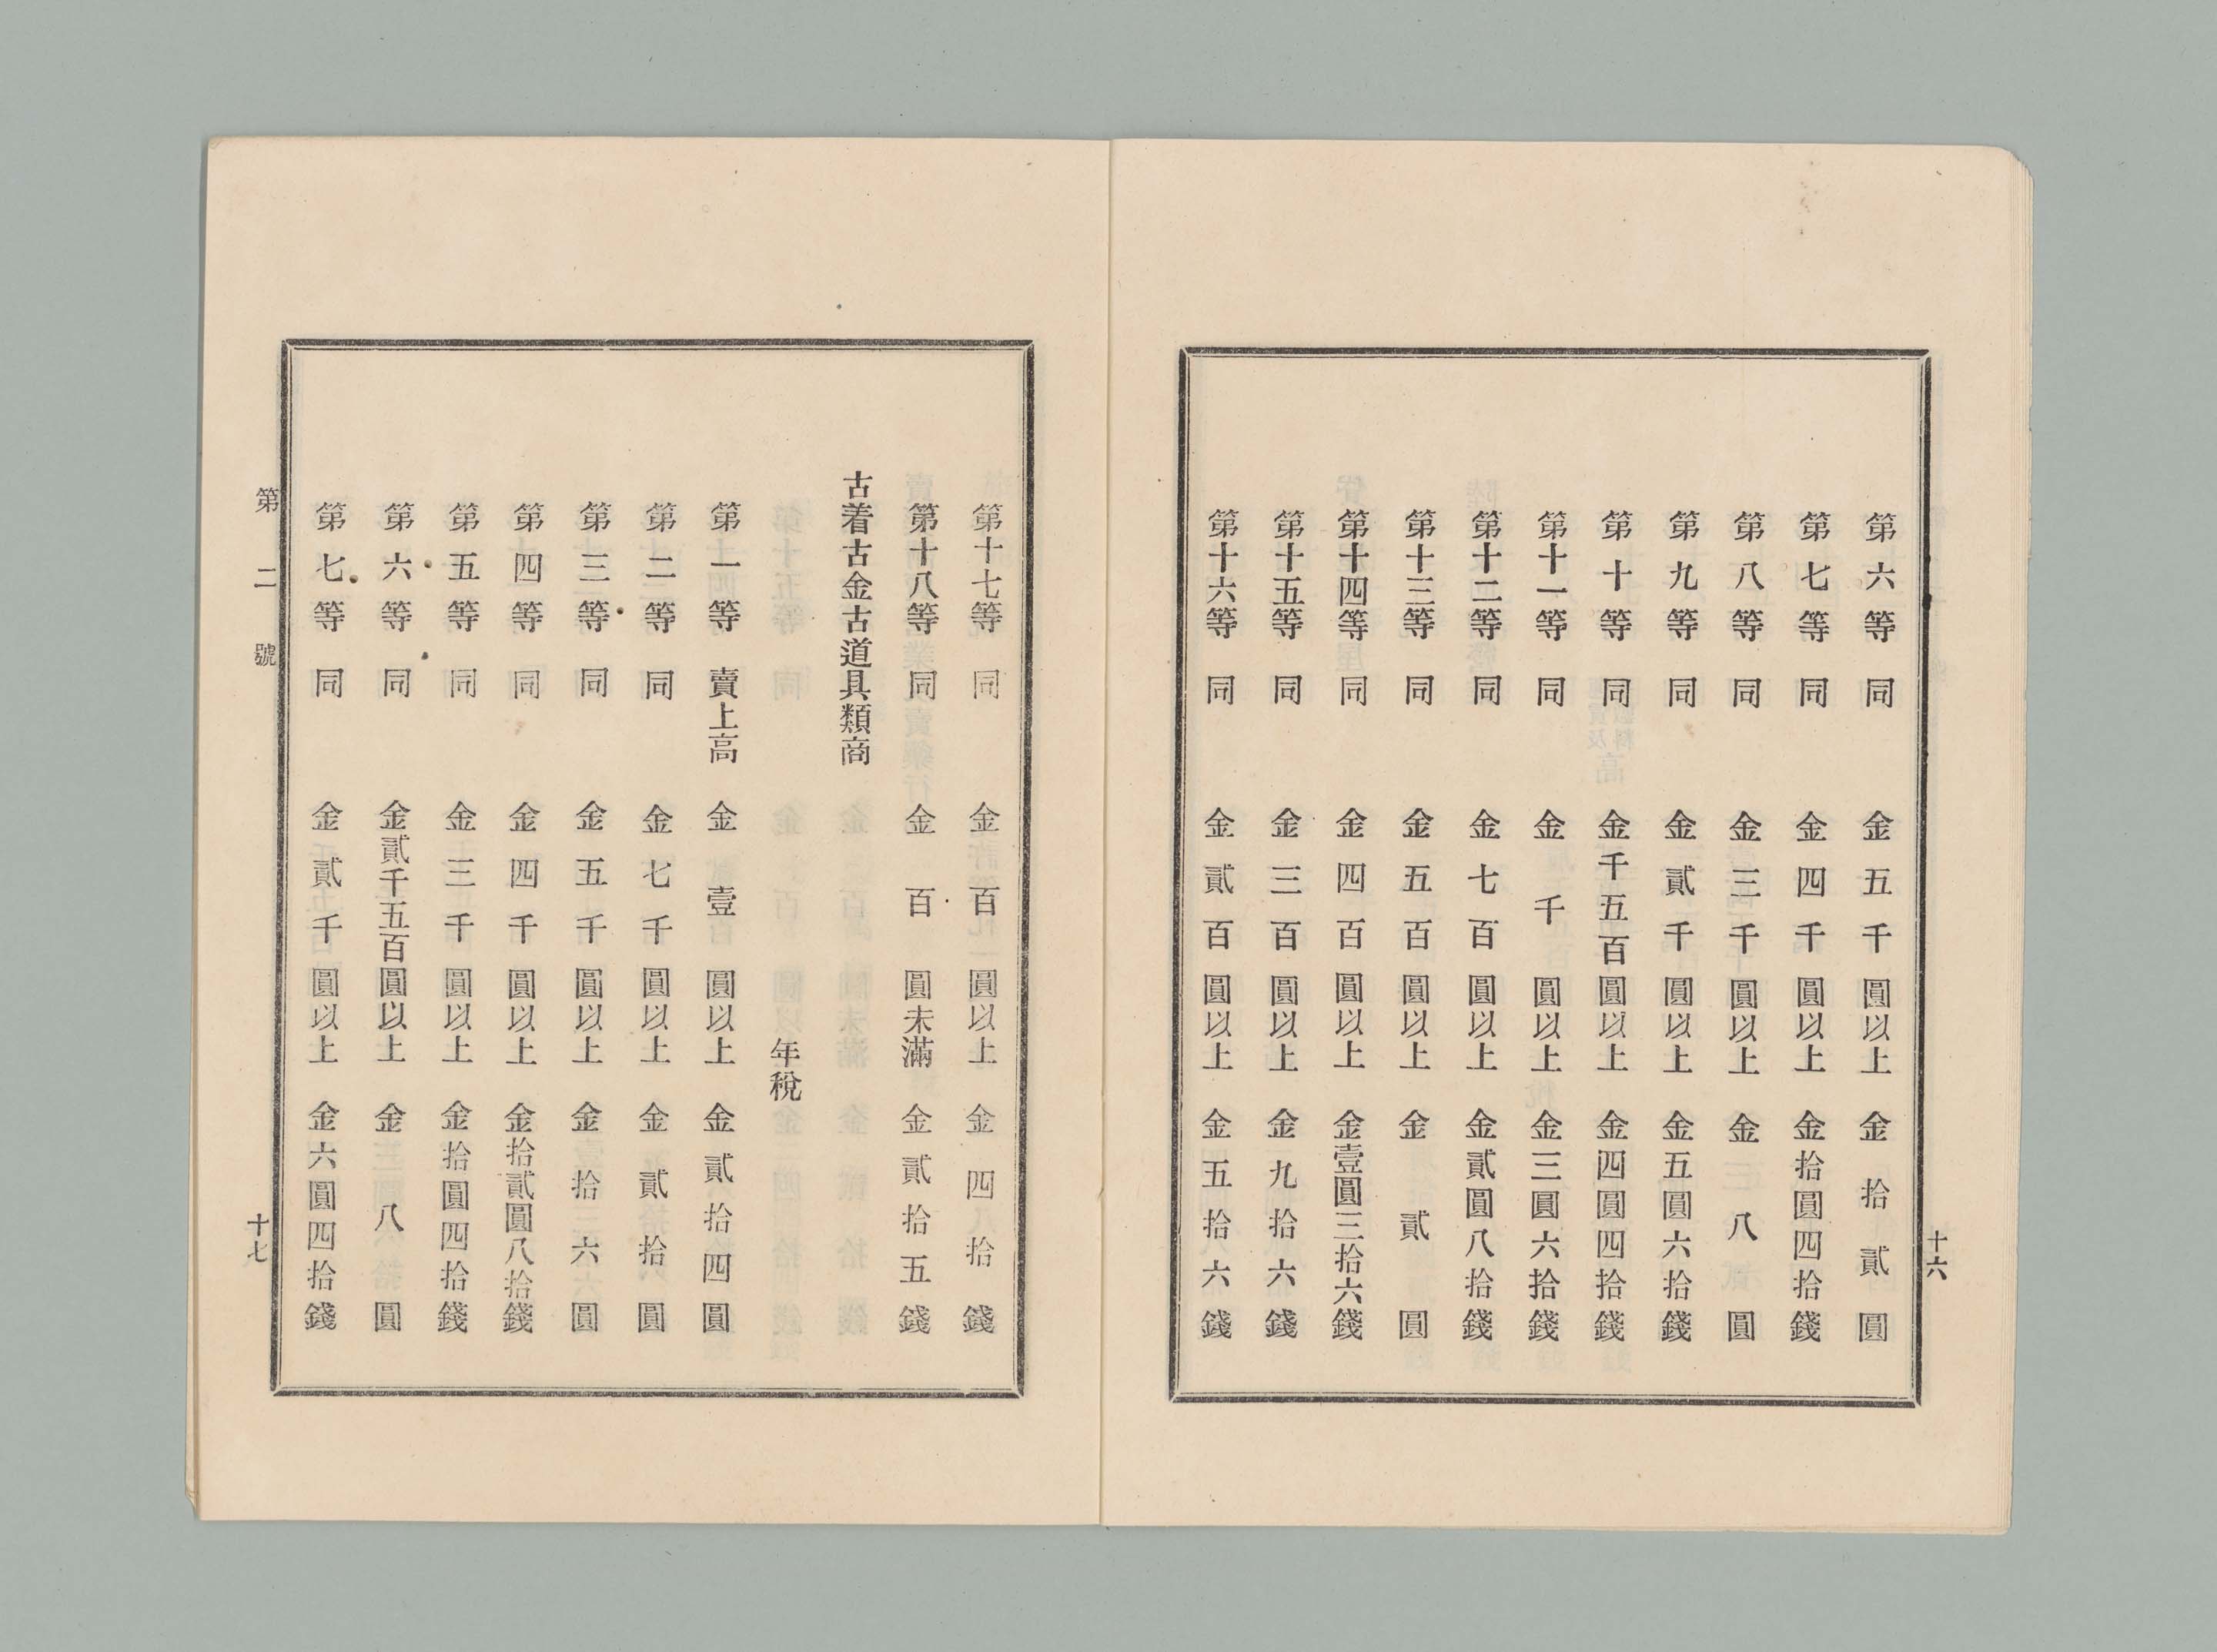 第六等同 金五千圓以上 金拾貳圓
第七等同 金四千圓以上 金拾圓四拾錢
第八等同 金三千圓以上 金八圓
第九等同 金貳千圓以上 金五圓六拾錢
第十等同 金千五百圓以上 金四圓四拾錢
第十一等同 金千圓以上 金三圓六拾錢
第十二等同 金七百圓以上 金貳圓八拾錢
第十三等同 金五百圓以上 金貳圓
第十四等同 金四百圓以上 金壹圓三拾六錢
第十五等同 金三百圓以上 金九拾六錢
第十六等同 金貳百圓以上 金五拾六錢
十六
第十七等同 金百圓以上 金四拾錢
第十八等同 金百圓未滿 金貳拾五錢
古着古金古道具類商
年稅
第一等 賣上高 金壹圓以上 金貳拾四圓
第二等同 金七千圓以上 金貳拾圓
第三等同 金五千圓以上 金拾六圓
第四等同 金四千圓以上 金拾貳圓八拾錢
第五等同 金三千圓以上 金拾圓四拾錢
第六等同 金貳千五百圓以上 金八圓
第七等同 金貳千圓以上 金六圓四拾錢
第二號
十七